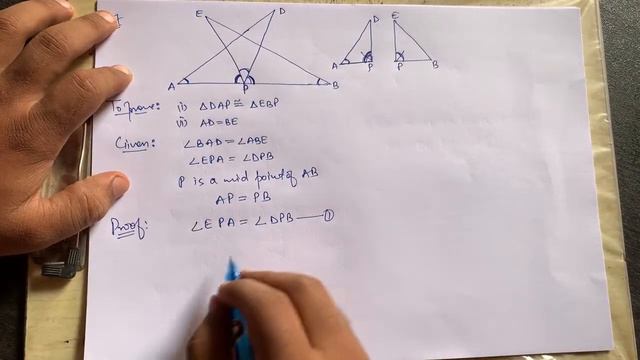 E D
A P B
D
A P
E
P B
To prove: (i) △DAP ≅ △EBP
(ii) AD=BE
Given: ∠BAD = ∠ABE
∠EPA = ∠DPB
P is a mid point of AB
AP = PB
Proof: ∠EPA = ∠DPB —— ①